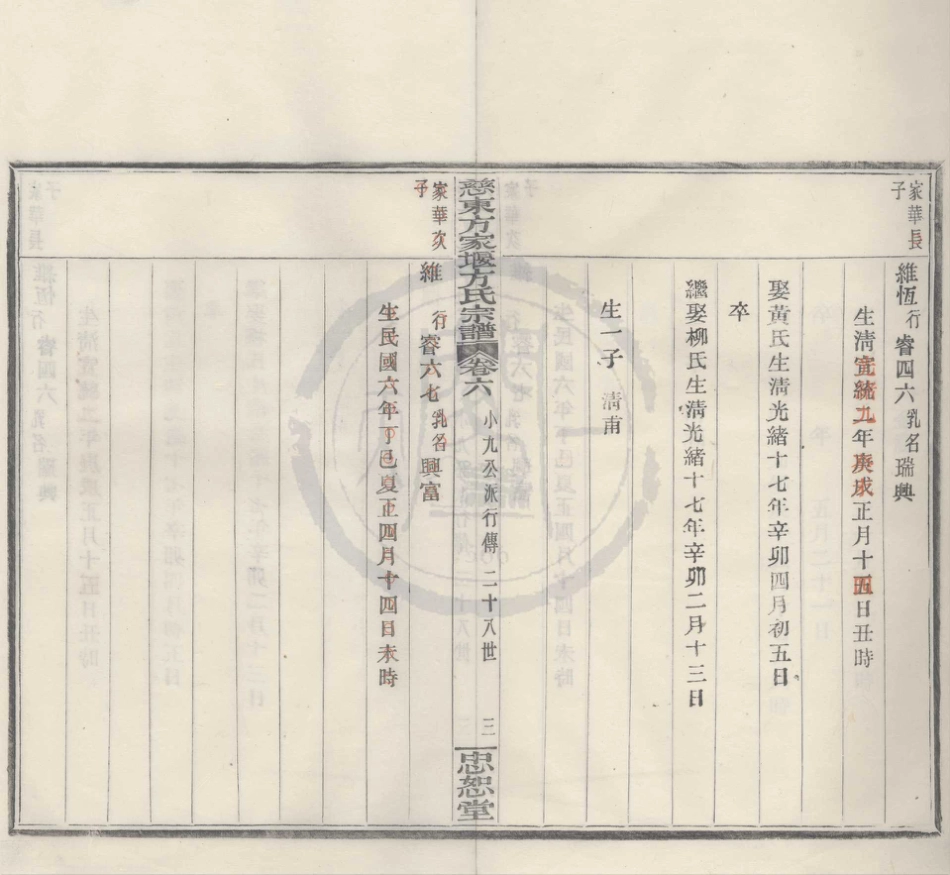 家華長子
維恆行睿四六乳名瑞興
生清宣統九年庚戌正月十五日丑時
娶黃氏生清光緒十七年辛卯四月初五日
卒
繼娶柳氏生清光緒十七年辛卯二月十三日
生一子 清甫
慈東方家堰方氏宗譜 卷六 小九公派行傳 二十八世 三 忠恕堂
家華次子
維 行睿六七乳名興富
生民國六年丁巳夏正四月十四日未時